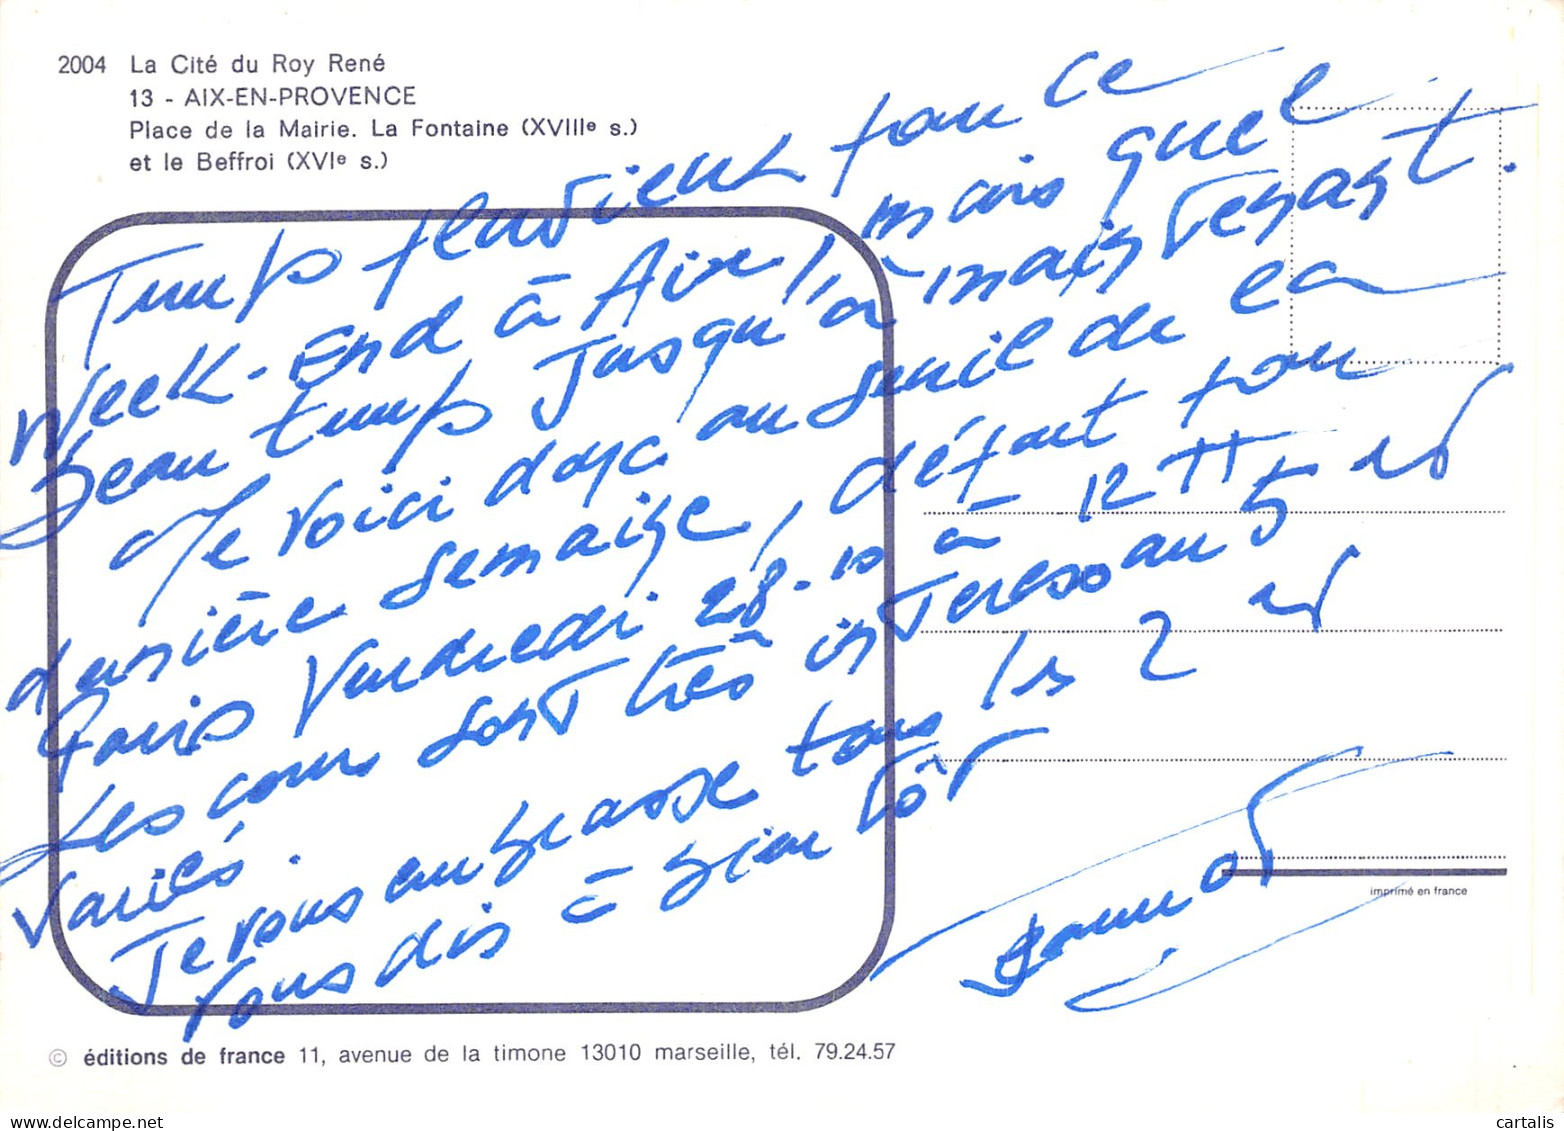 2004 La Cité du Roy René
13 - AIX-EN-PROVENCE
Place de la Mairie. La Fontaine (XVIIIe s.)
et le Beffroi (XVIe s.)
Temps pluvieux pour ce
Week-End à Aix, mais quel
beau temps jusqu'à maintenant.
Me voici donc au seuil de la
dernière semaine, départ pour
Paris Vendredi 28-10 à 12 H
Les cours sont très intéressants et
variés.
Je vous embrasse tous les 2 et
vous dis à bientôt
imprimé en france
© éditions de france 11, avenue de la timone 13010 marseille, tél. 79.24.57
cartalis